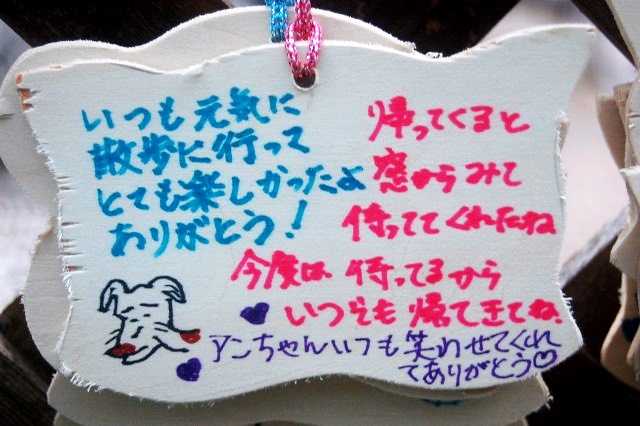 いつも元気に
散歩に行って
とても楽しかったよ
ありがとう!
帰ってくると
窓からみて
待っててくれたね
今度は待ってるから
いつでも帰てきてね.
アンちゃんいつも笑わせてくれ
てありがとう♡